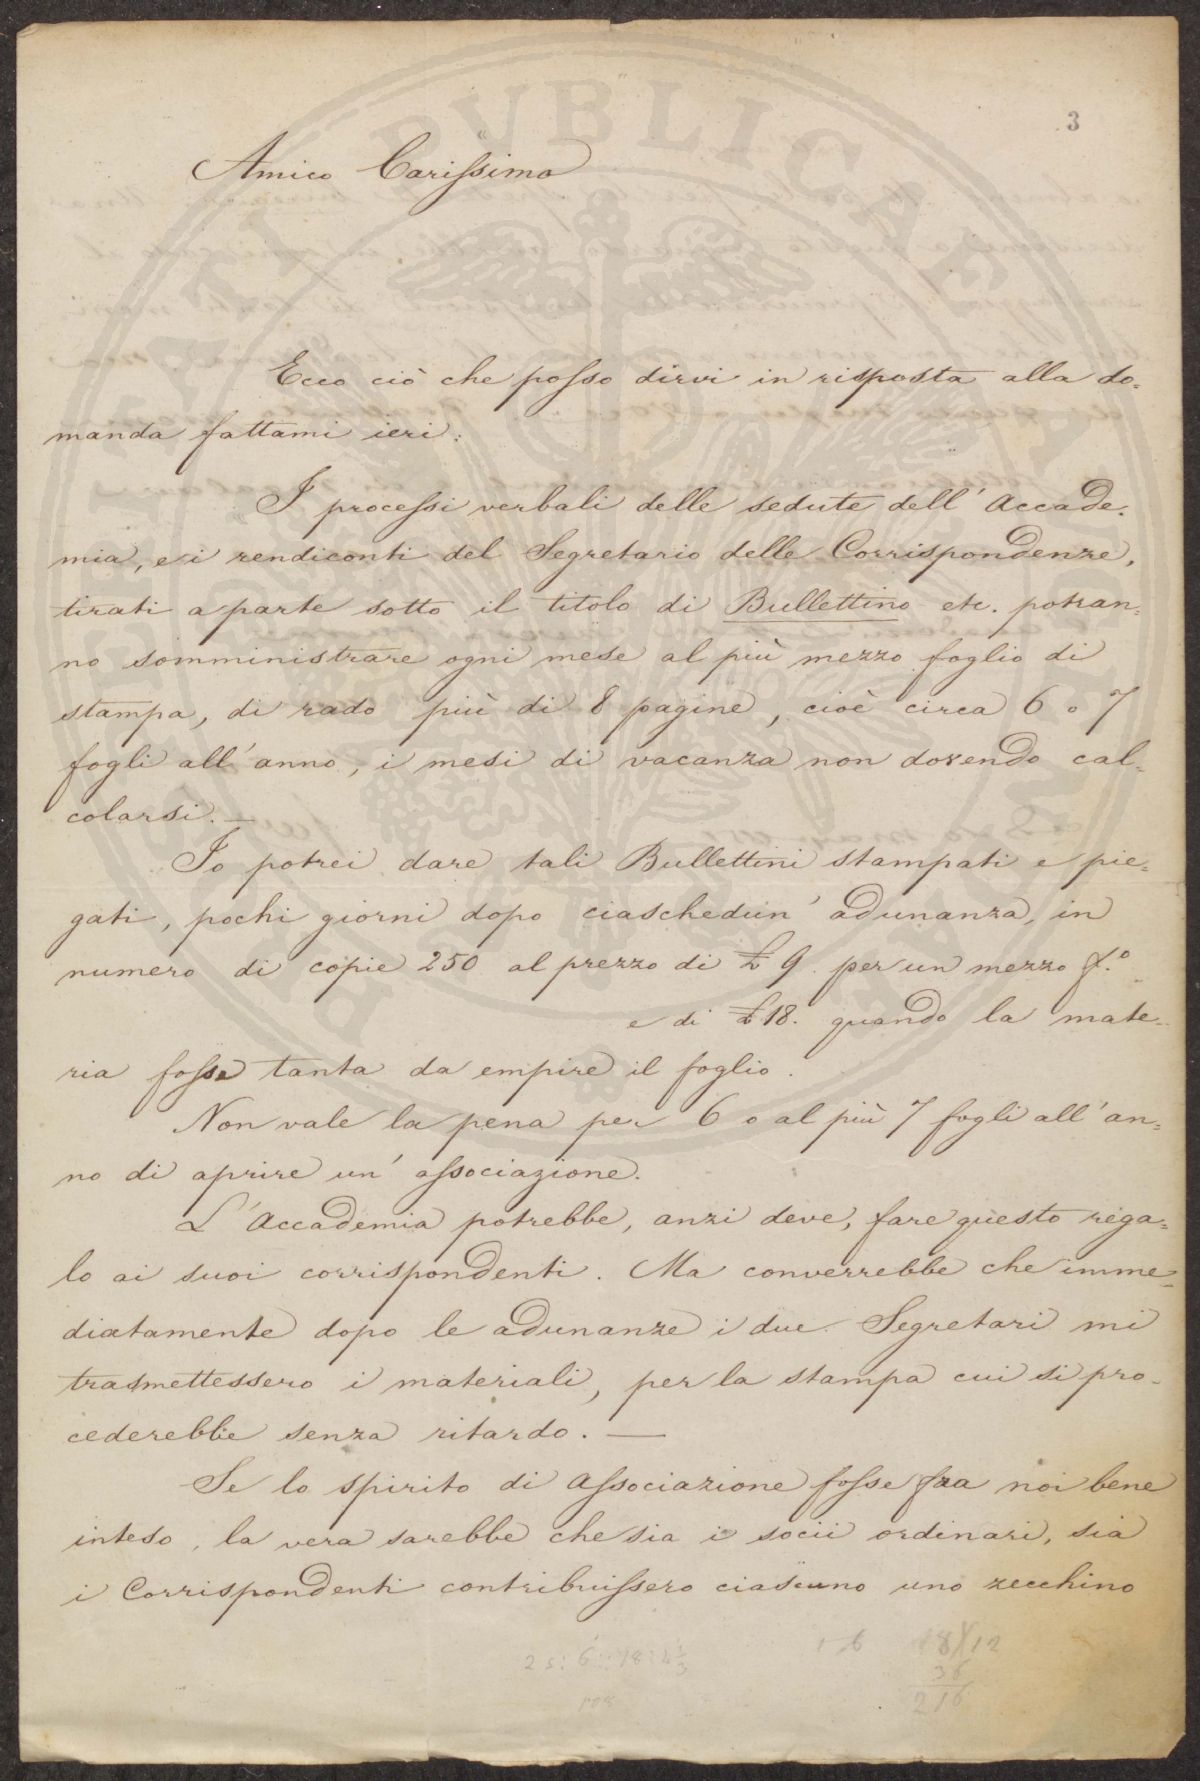 3
Amico Carissimo
Ecco ciò che posso dirvi in risposta alla do=
manda fattami ieri:
I processi verbali delle sedute dell'Accade=
mia, e i rendiconti del Segretario delle Corrispondenze,
tirati a parte sotto il titolo di Bullettino etc. potran=
no somministrare ogni mese al più mezzo foglio di
stampa, di rado più di 8 pagine, cioè circa 6 o 7
fogli all'anno, i mesi di vacanza non dovendo cal=
colarsi. —
Io potrei dare tali Bullettini stampati e pie=
gati, pochi giorni dopo ciaschedun' adunanza, in
numero di copie 250 al prezzo di £ 9. per un mezzo f.º
e di £ 18. quando la mate=
ria fosse tanta da empire il foglio.
Non vale la pena per 6 o al più 7 fogli all'an=
no di aprire un' associazione.
L'Accademia potrebbe, anzi deve, fare questo rega=
lo ai suoi corrispondenti. Ma converrebbe che imme=
diatamente dopo le adunanze i due Segretari mi
trasmettessero i materiali, per la stampa cui si pro=
cederebbe senza ritardo. —
Se lo spirito di associazione fosse fra noi bene
inteso, la vera sarebbe che sia i socii ordinari, sia
i Corrispondenti contribuissero ciascuno uno zecchino
18)12
36
216
108
PUBLICAE